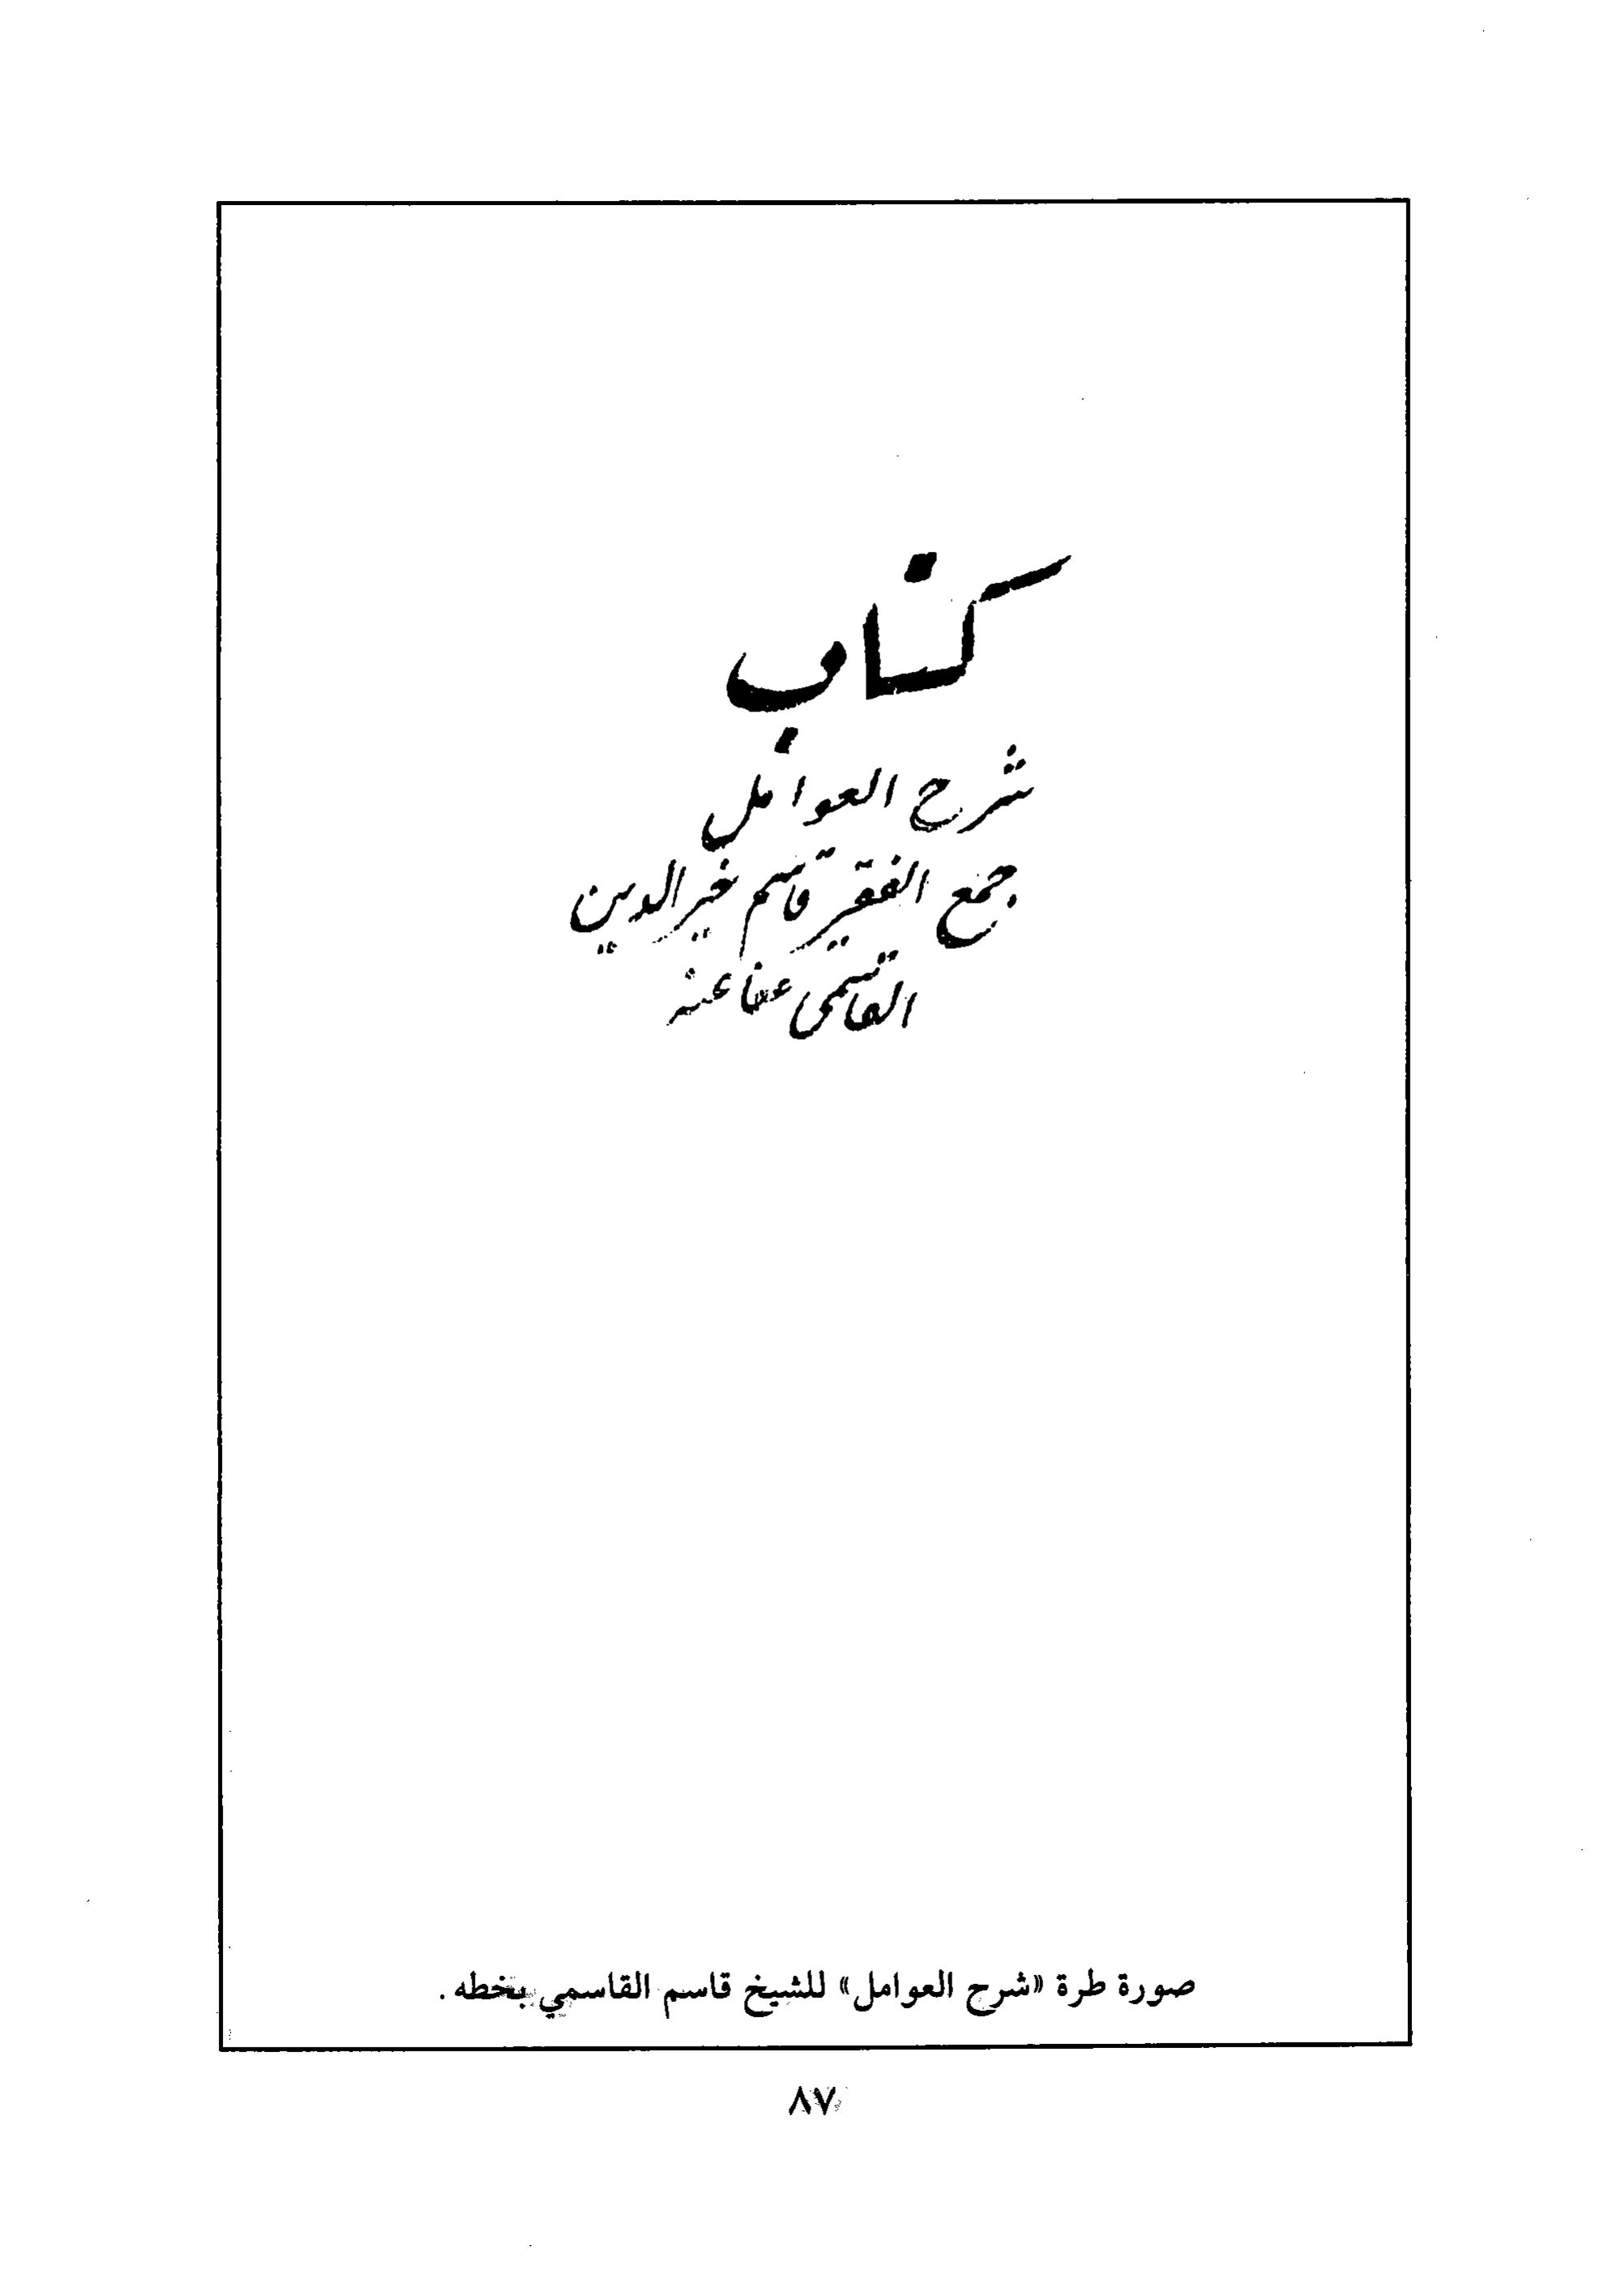 كتاب
شرح العوامل
جمع الفقير قاسم خير الدين
القاسمى عفا عنه
صورة طرة «شرح العوامل» للشيخ قاسم القاسمي بخطه .
٨٧